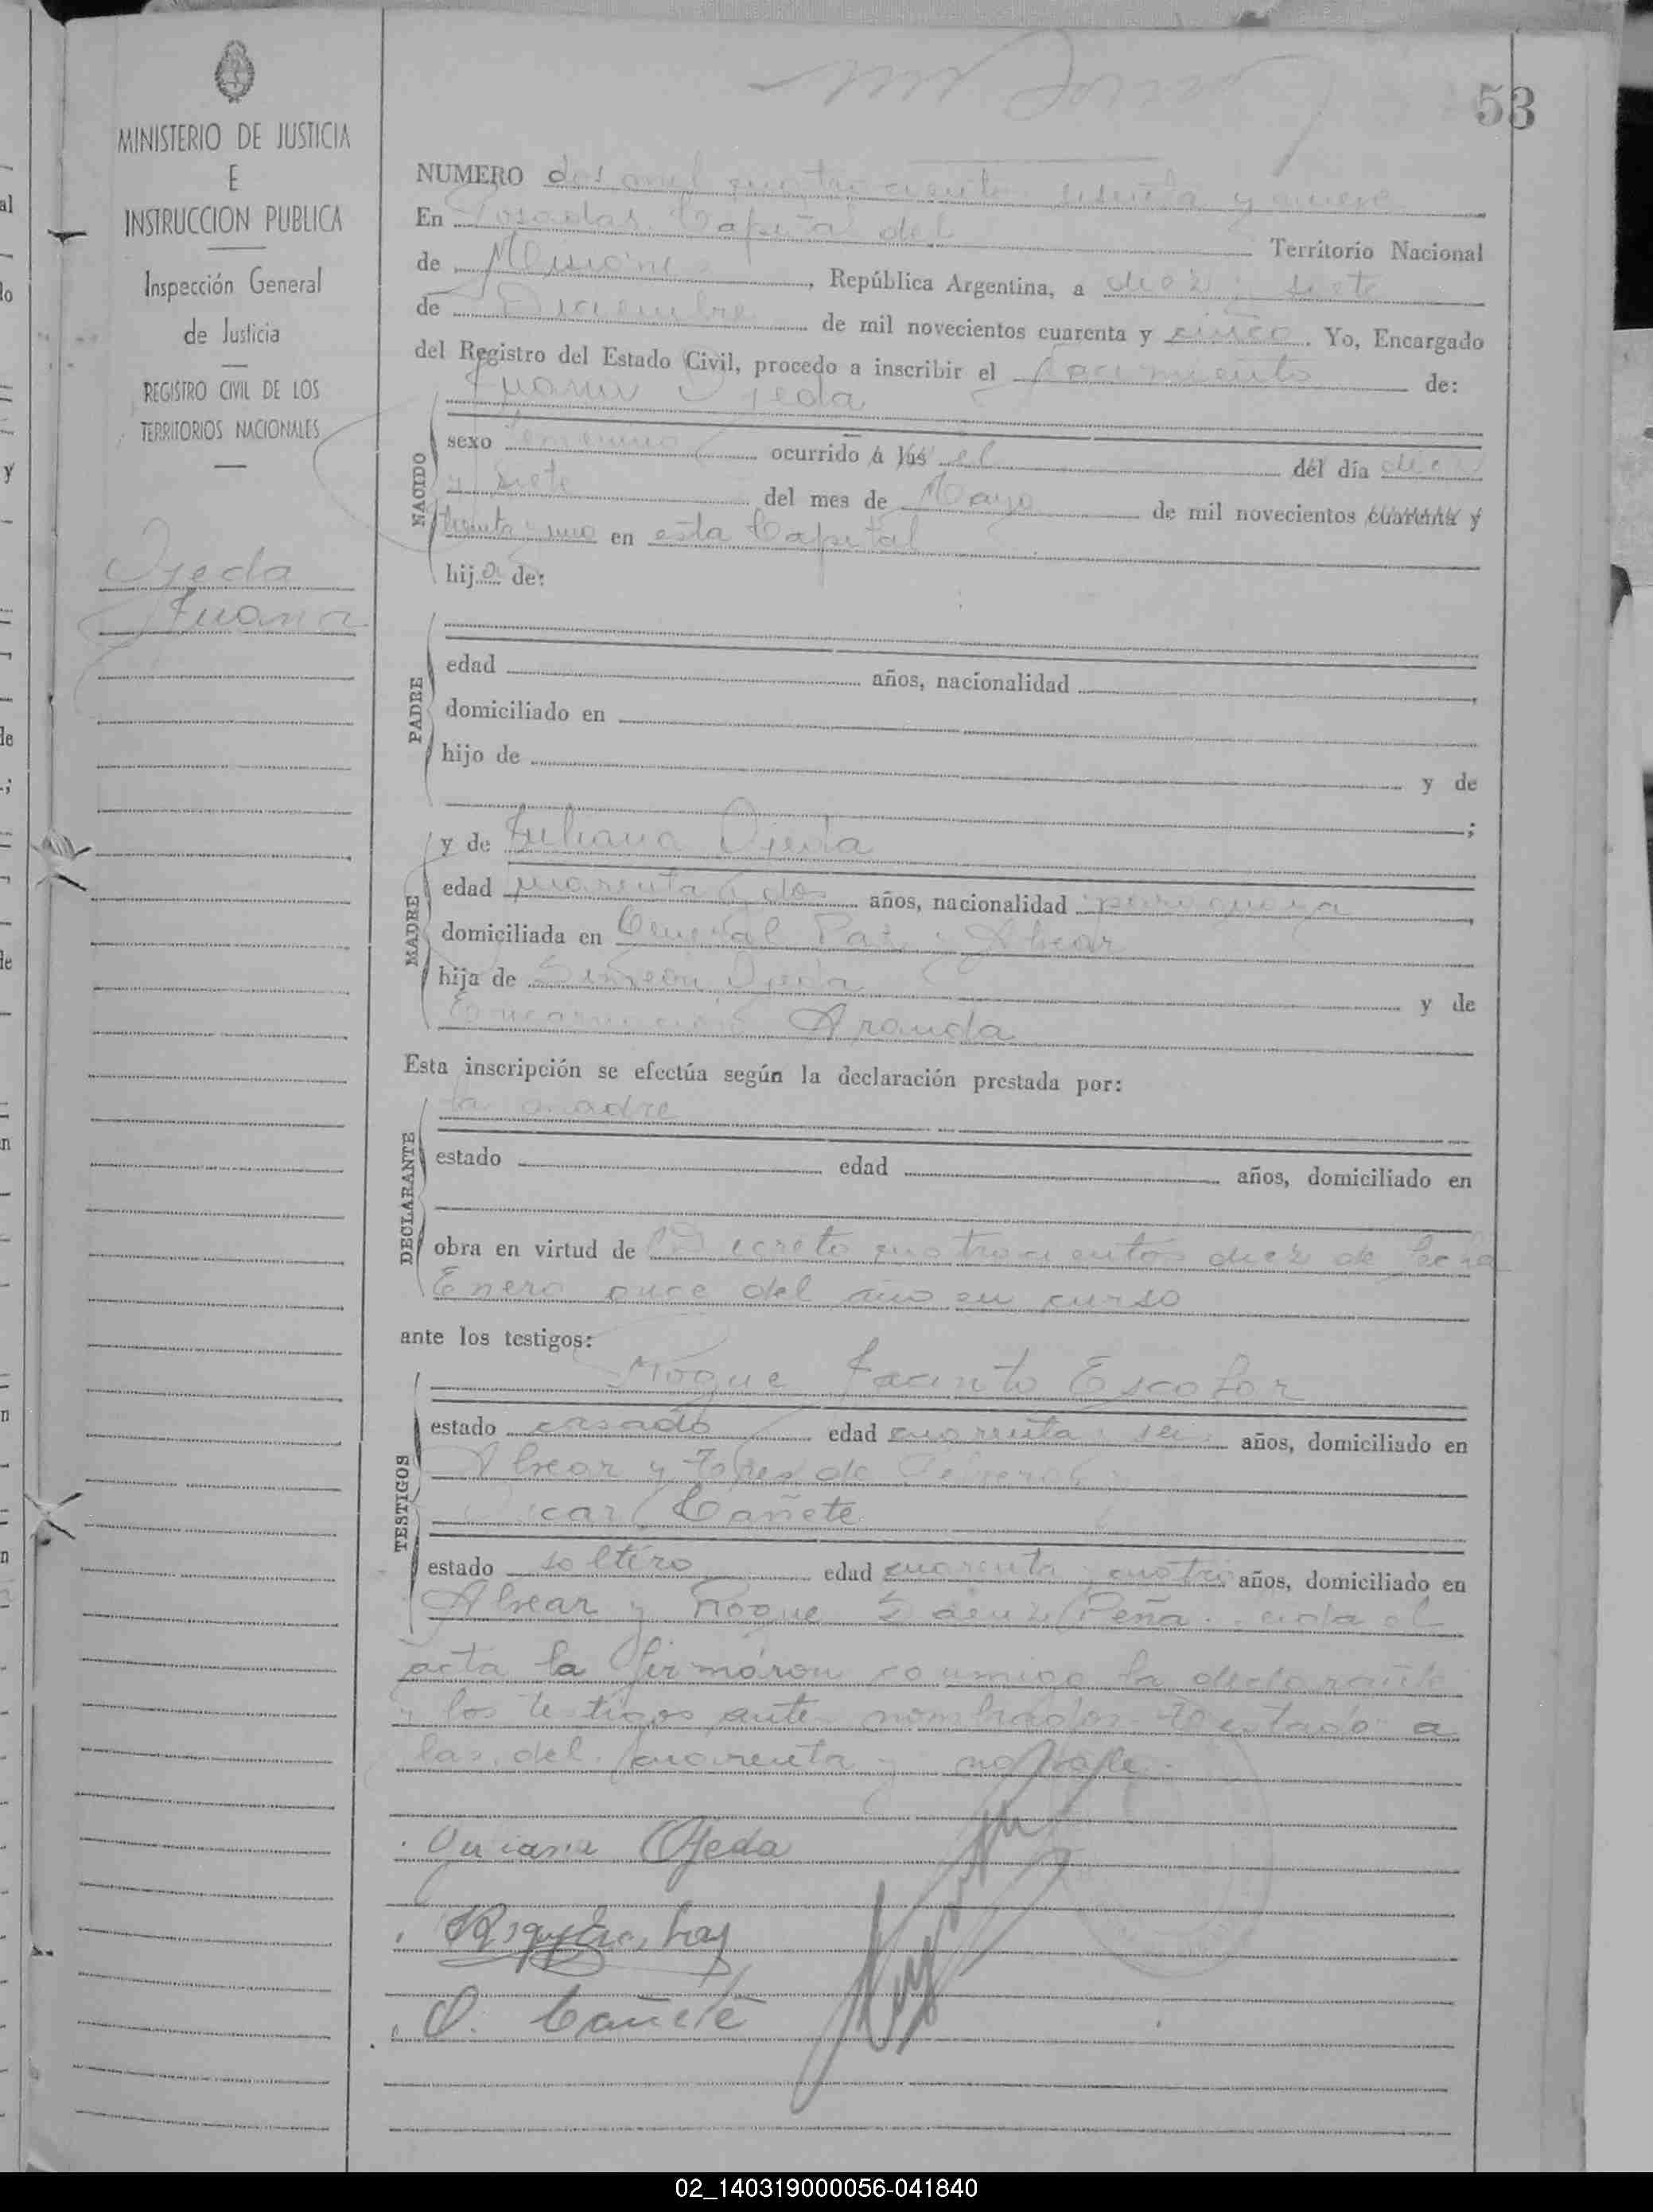 53
MINISTERIO DE JUSTICIA
E
INSTRUCCION PUBLICA
Inspección General
de Justicia
REGISTRO CIVIL DE LOS
TERRITORIOS NACIONALES
Ojeda
Juana
NUMERO dos mil cuatrocientos sesenta y nueve
En Posadas Capital del Territorio Nacional
de Misiones, República Argentina, a diez y siete
de Diciembre de mil novecientos cuarenta y cinco. Yo, Encargado
del Registro del Estado Civil, procedo a inscribir el nacimiento de:
Juana Ojeda
NACIDO
sexo femenino ocurrido á las el del día diez
y siete del mes de Mayo de mil novecientos cuarenta y
treinta y uno en esta Capital
hija de:
PADRE
edad años, nacionalidad
domiciliado en
hijo de y de
;
MADRE
y de Juliana Ojeda
edad cuarenta y dos años, nacionalidad paraguaya
domiciliada en General Paz y Alvear
hija de Simeon Ojeda y de
Encarnación Aranda
Esta inscripción se efectúa según la declaración prestada por:
la madre
DECLARANTE
estado edad años, domiciliado en
obra en virtud de Decreto cuatrocientos diez de fecha
Enero once del año en curso
ante los testigos:
TESTIGOS
Roque Jacinto Escobar
estado casado edad cuarenta y seis años, domiciliado en
Alvear y Tres de Febrero
Oscar Cañete
estado soltero edad cuarenta y cuatro años, domiciliado en
Alvear y Roque Saenz Peña. Leida el
acta la firmaron conmigo la declarante
y los testigos antes nombrados. Testado a
las. del. cuarenta y no vale.
Juliana Ojeda
O. Cañete
02_140319000056-041840